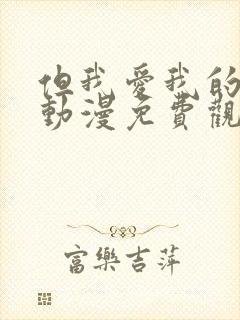 但我愛我的
動漫免費觀
富樂吉萍